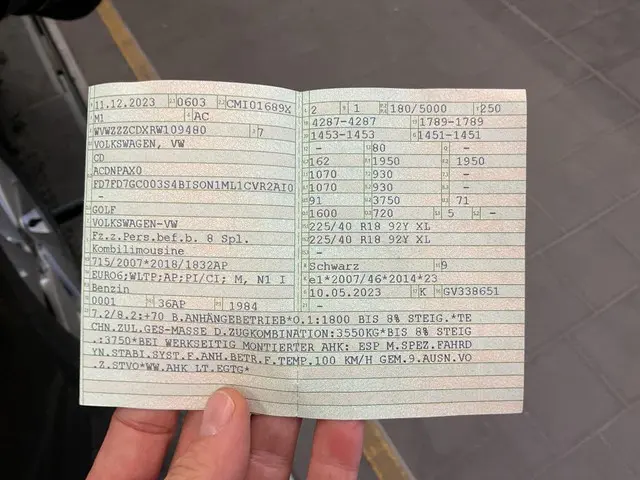 11.12.2023 0603 CMI01689X
M1 AC
WVWZZZCDXRW109480 7
VOLKSWAGEN, VW
CD
ACDNPAX0
FD7FD7GC003S4BISON1ML1CVR2AI0
-
GOLF
VOLKSWAGEN-VW
Fz.z.Pers.bef.b. 8 Spl.
Kombilimousine
715/2007*2018/1832AP
EURO6;WLTP;AP;PI/CI; M, N1 I
Benzin
0001 36AP 1984
2 1 180/5000 250
4287-4287 1789-1789
1453-1453 1451-1451
- 80 -
162 1950 1950
1070 930 -
1070 930 -
91 3750 71
1600 720 5 -
225/40 R18 92Y XL
225/40 R18 92Y XL
-
Schwarz 9
e1*2007/46*2014*23
10.05.2023 K GV338651
-
7.2/8.2:+70 B.ANHÄNGEBETRIEB*O.1:1800 BIS 8% STEIG.*TE
CHN.ZUL.GES-MASSE D.ZUGKOMBINATION:3550KG*BIS 8% STEIG
.:3750*BEI WERKSEITIG MONTIERTER AHK: ESP M.SPEZ.FAHRD
YN.STABI.SYST.F.ANH.BETR.F.TEMP.100 KM/H GEM.9.AUSN.VO
.Z.STVO*WW.AHK LT.EGTG*